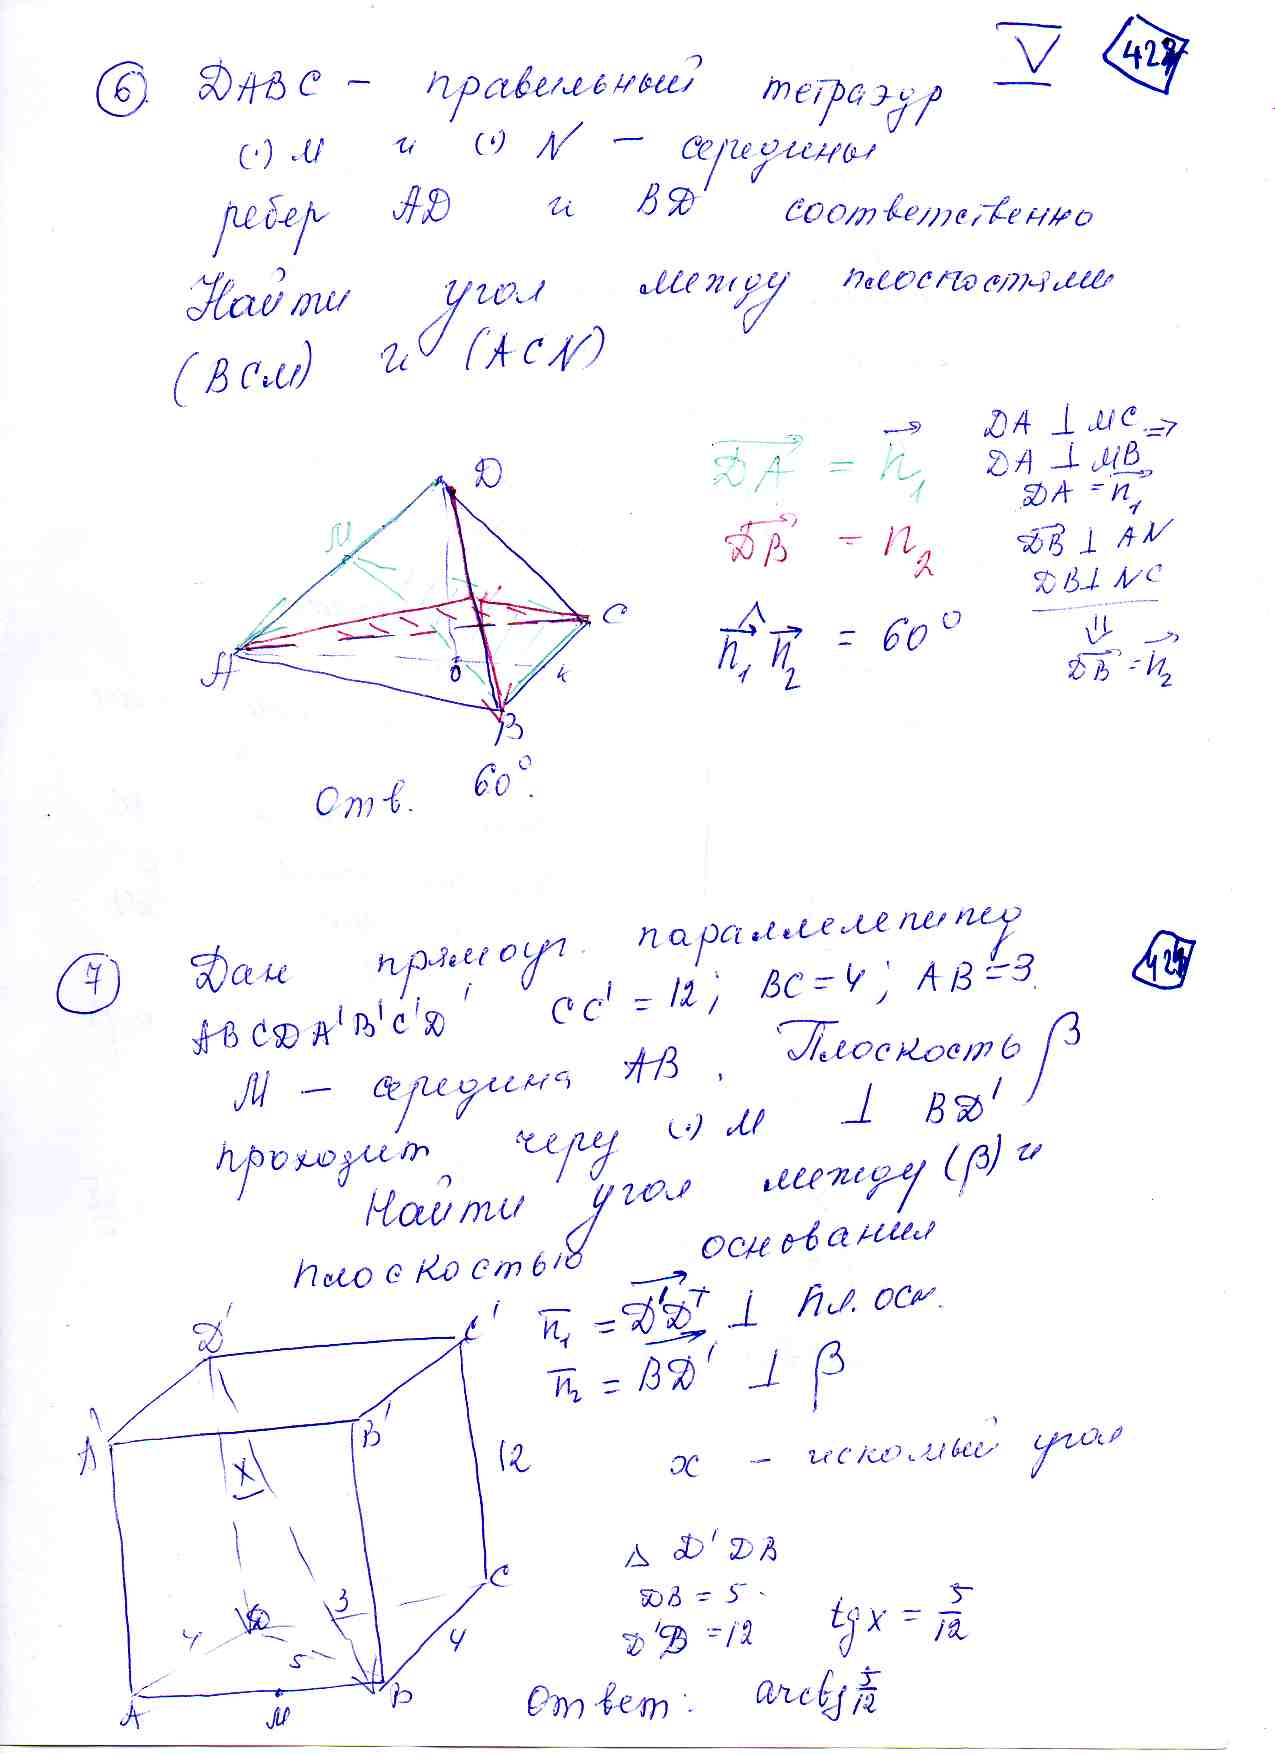 V
6. DABC – правильный тетраэдр
(·) M и (·) N – середины
ребер AD и BD соответственно
Найти угол между плоскостями
(BCM) и (ACN)
DA = n₁
DB = n₂
n₁ n₂ = 60°
DA ⊥ MC ⇒
DA ⊥ MB
DA = n₁
DB ⊥ AN
DB ⊥ NC
⇓
DB = n₂
D
M
C
A
O
K
B
Отв. 60°.
7 Дан прямоуг. параллелепипед
ABCDA'B'C'D' CC' = 12; BC = 4; AB = 3.
M – середина AB. Плоскость β
проходит через (·) M ⊥ BD'
Найти угол между (β) и
плоскостью основания
n₁ = D'D ⊥ пл. осн.
n₂ = BD' ⊥ β
x – искомый угол
Δ D'DB
DB = 5
D'D = 12
tg x = 5/12
Ответ: arctg 5/12
D'
C'
A'
B'
x
12
D
3
C
4
5
4
A
M
B